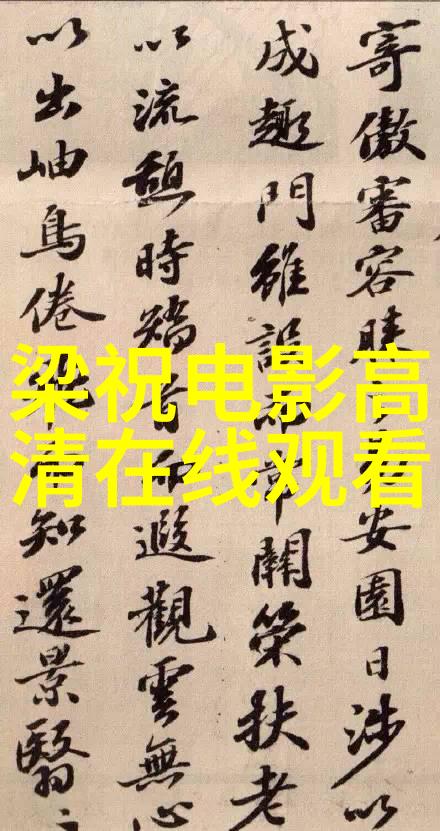 梁祝电影高
清在线观看
寄傲審容膝之易安園日涉以
成趣門雖設而常關策扶老
以流憩時矯首而遐觀雲無心
以出岫鳥倦飛而知還景翳